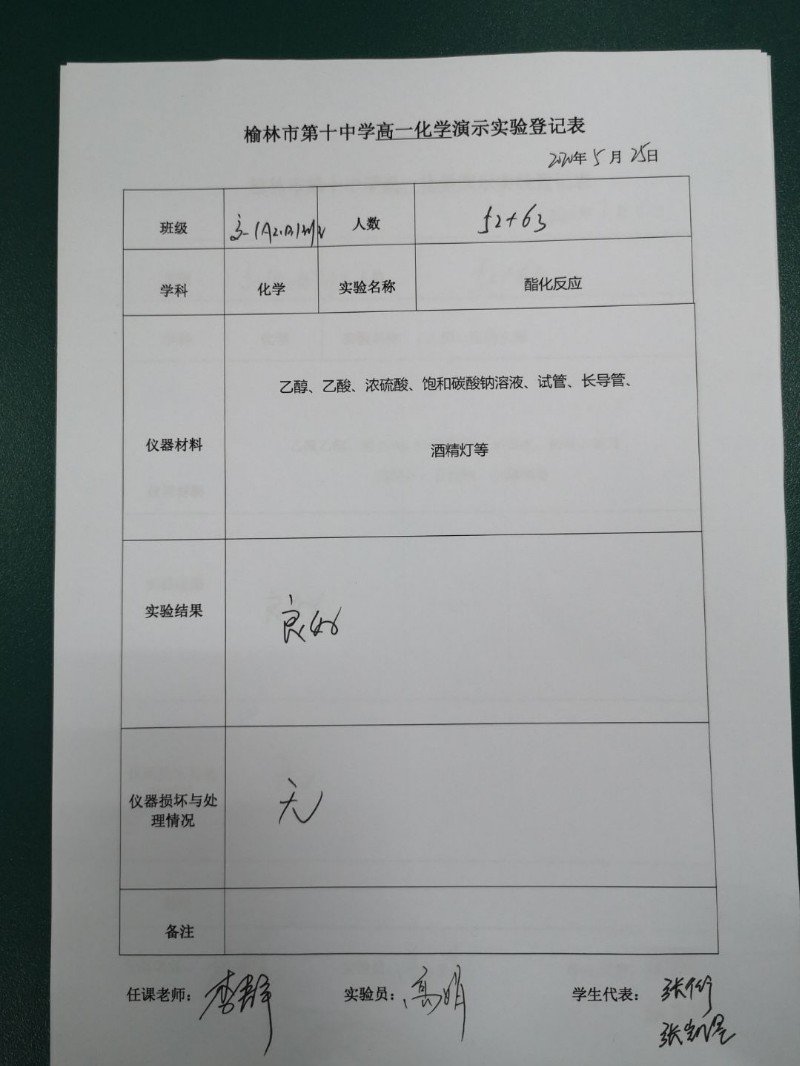 榆林市第十中学高一化学演示实验登记表
2020年5月25日
班级 人数 52+63
学科 化学 实验名称 酯化反应
仪器材料
乙醇、乙酸、浓硫酸、饱和碳酸钠溶液、试管、长导管、
酒精灯等
实验结果 良好
仪器损坏与处
理情况
无
备注
任课老师：李静 实验员：高明 学生代表：